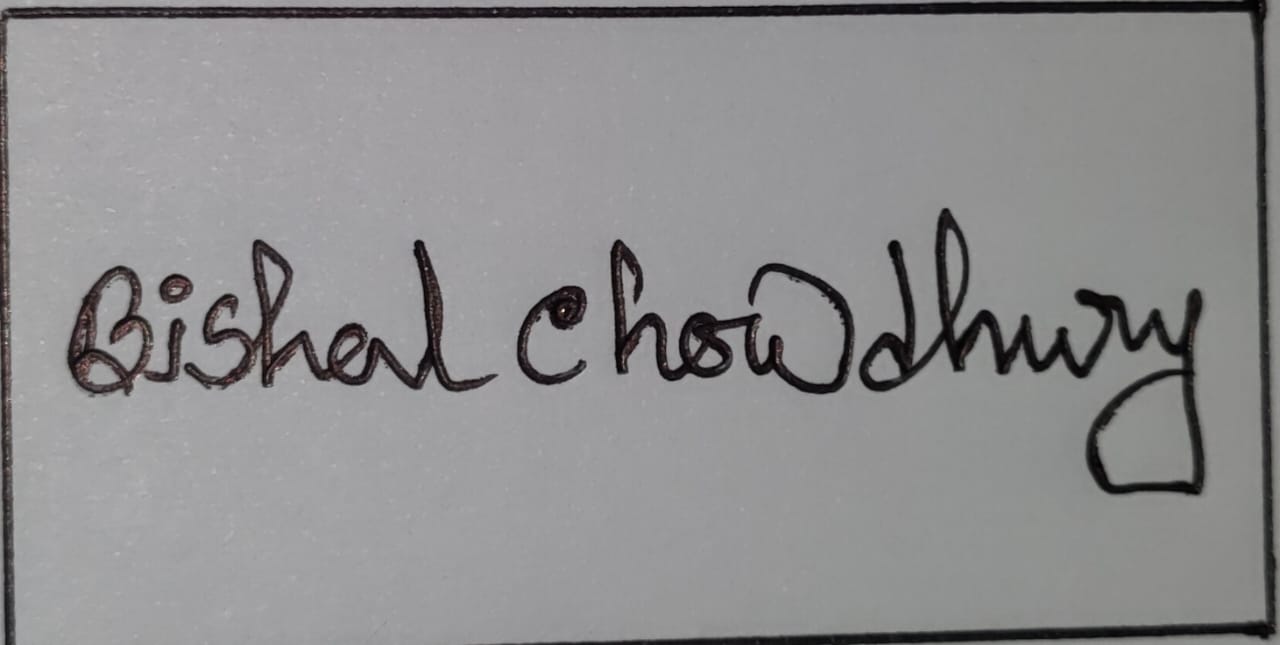 Bishal Chowdhury